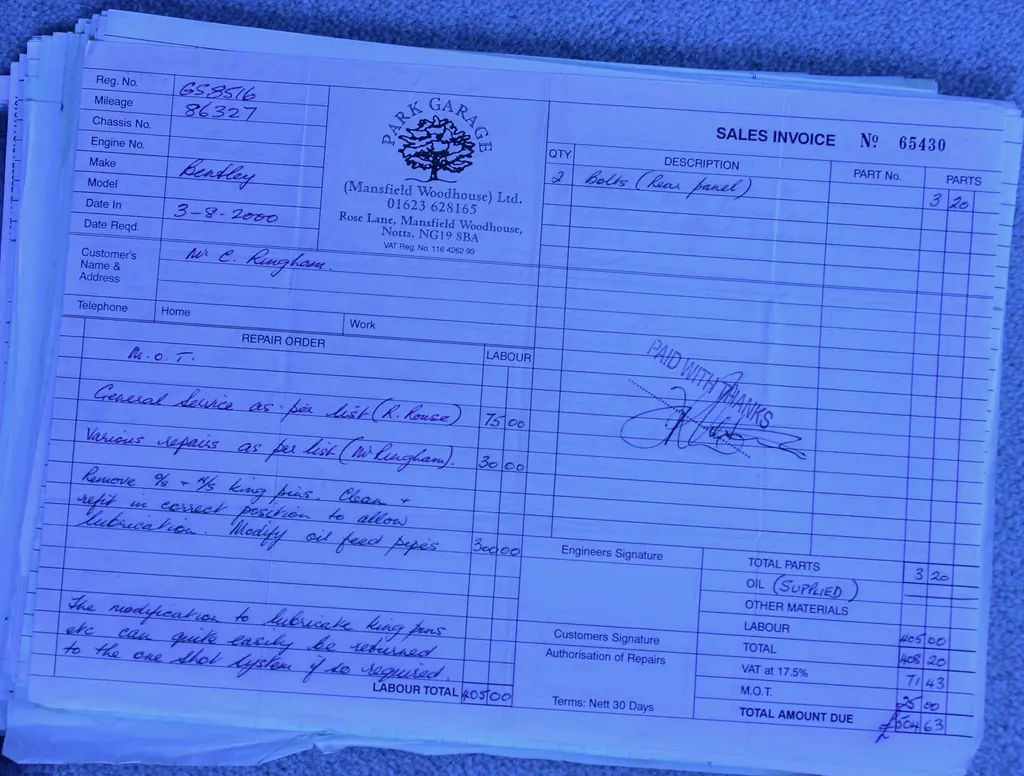 Reg. No. GS8516
Mileage 86327
Chassis No.
Engine No.
Make Bentley
Model
Date In 3-8-2000
Date Reqd.
Customer's Name & Address Mr C. Ringham.
Telephone Home Work
PARK GARAGE
(Mansfield Woodhouse) Ltd.
01623 628165
Rose Lane, Mansfield Woodhouse,
Notts. NG19 8BA
VAT Reg. No. 116 4262 93
REPAIR ORDER LABOUR
M.O.T.
General Service as per list (R. Rouse) 75 00
Various repairs as per list (Mr Ringham). 30 00
Remove O/S + N/S king pins. Clean +
refit in correct position to allow
lubrication. Modify oil feed pipes 300 00
The modification to lubricate king pins
etc can quite easily be returned
to the one shot system if so required.
LABOUR TOTAL 405 00
SALES INVOICE No 65430
QTY DESCRIPTION PART No. PARTS
2 Bolts (Rear panel) 3 20
PAID WITH THANKS
Engineers Signature
Customers Signature
Authorisation of Repairs
Terms: Nett 30 Days
TOTAL PARTS 3 20
OIL (SUPPLIED)
OTHER MATERIALS
LABOUR 405 00
TOTAL 408 20
VAT at 17.5% 71 43
M.O.T. 25 00
TOTAL AMOUNT DUE £504 63